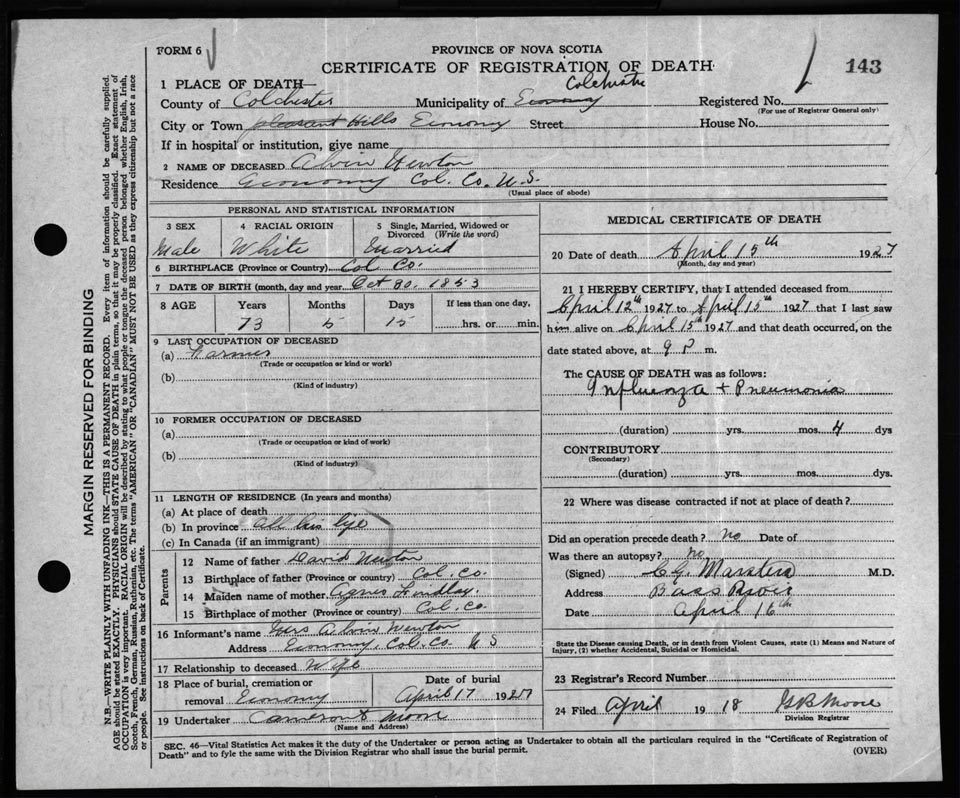 FORM 6
PROVINCE OF NOVA SCOTIA
CERTIFICATE OF REGISTRATION OF DEATH
143
1 PLACE OF DEATH—
Colchester
County of Colchester Municipality of Economy Registered No.
(For use of Registrar General only)
City or Town Pleasant Hills Economy Street House No.
If in hospital or institution, give name
2 NAME OF DECEASED Alvin Newton
Residence Economy Col. Co. N.S.
(Usual place of abode)
PERSONAL AND STATISTICAL INFORMATION
3 SEX 4 RACIAL ORIGIN 5 Single, Married, Widowed or Divorced (Write the word)
Male White Married
6 BIRTHPLACE (Province or Country) Col Co.
7 DATE OF BIRTH (month, day and year) Oct 30, 1853
8 AGE Years Months Days If less than one day,
73 5 15 hrs. or min.
9 LAST OCCUPATION OF DECEASED
(a) Farmer
(Trade or occupation or kind or work)
(b)
(Kind of industry)
10 FORMER OCCUPATION OF DECEASED
(a)
(Trade or occupation or kind of work)
(b)
(Kind of industry)
11 LENGTH OF RESIDENCE (In years and months)
(a) At place of death
(b) In province all his life
(c) In Canada (if an immigrant)
Parents
12 Name of father David Newton
13 Birthplace of father (Province or country) Col. Co.
14 Maiden name of mother Agnes Findlay.
15 Birthplace of mother (Province or country) Col. Co
16 Informant's name Mrs Alvin Newton
Address Economy, Col. Co. N S
17 Relationship to deceased Wife
18 Place of burial, cremation or Date of burial
removal Economy April 17 1927
19 Undertaker Cameron & Moore
(Name and Address)
MEDICAL CERTIFICATE OF DEATH
20 Date of death April 15th 1927
(Month, day and year)
21 I HEREBY CERTIFY, that I attended deceased from
April 12th 1927 to April 15th 1927 that I last saw
him alive on April 15th 1927 and that death occurred, on the
date stated above, at 9 P m.
The CAUSE OF DEATH was as follows:
Influenza + Pneumonia
(duration) yrs. mos. 4 dys
CONTRIBUTORY
(Secondary)
(duration) yrs. mos. dys.
22 Where was disease contracted if not at place of death?
Did an operation precede death? no Date of
Was there an autopsy? no
(Signed) M.D.
Address Bass River
Date April 16th
State the Disease causing Death, or in death from Violent Causes, state (1) Means and Nature of
Injury, (2) whether Accidental, Suicidal or Homicidal.
23 Registrar's Record Number
24 Filed April 1918 Moore
Division Registrar
SEC. 46—Vital Statistics Act makes it the duty of the Undertaker or person acting as Undertaker to obtain all the particulars required in the "Certificate of Registration of
Death" and to fyle the same with the Division Registrar who shall issue the burial permit.
(OVER)
MARGIN RESERVED FOR BINDING
N.B.—WRITE PLAINLY WITH UNFADING INK—THIS IS A PERMANENT RECORD. Every item of information should be carefully supplied.
AGE should be stated EXACTLY. PHYSICIANS should STATE CAUSE OF DEATH in plain terms, so that it may be properly classified. Exact statement of
OCCUPATION is very important. RACIAL ORIGIN will be described by stating to what people or tongue the deceased person belonged whether English, Irish,
Scotch, French, German, Russian, Ruthenian, etc. The terms "AMERICAN" OR "CANADIAN" MUST NOT BE USED as they express citizenship but not a race
or people. See instructions on back of Certificate.